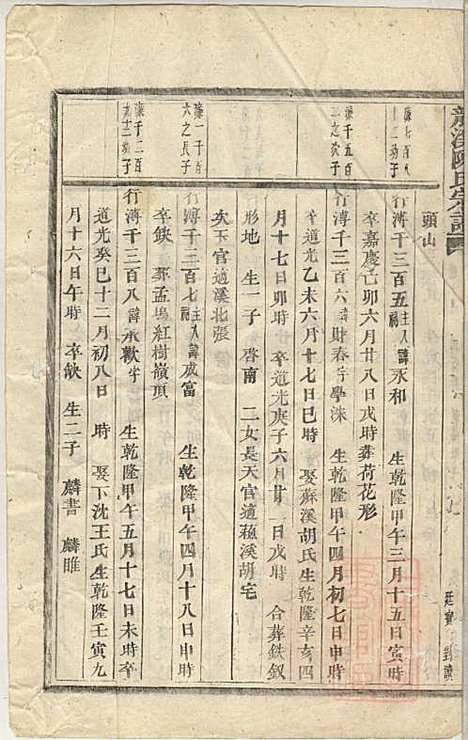 龍溪陳氏宗譜
頭山
濂七百八
十三幼子
行溥千三百五 主人諱永和 生乾隆甲午三月十五日寅時
卒嘉慶己卯六月廿八日戌時葬荷花形
濂千五百
三之次子
行溥千三百六 諱財春字學洙 生乾隆甲午四月初七日申時
卒道光乙未六月十七日巳時 娶蘇溪胡氏生乾隆辛亥四
月十七日卯時 卒道光庚子六月廿 日戌時 合葬鉄釵
形地 生一子 啓南 二女長天官適蘓溪胡宅
次玉官適溪北張
濂一千百
六之長子
行溥千三百七 主人諱成富 生乾隆甲午四月十八日申時
卒缺 葬孟塢紅樹嶺頂
濂千二百
行溥千三百八 諱承歡字 生乾隆甲午五月十七日未時卒
道光癸巳十二月初八日 時 娶下沈王氏生乾隆壬寅九
月十六日午時 卒缺 生二子 麟書 麟睢